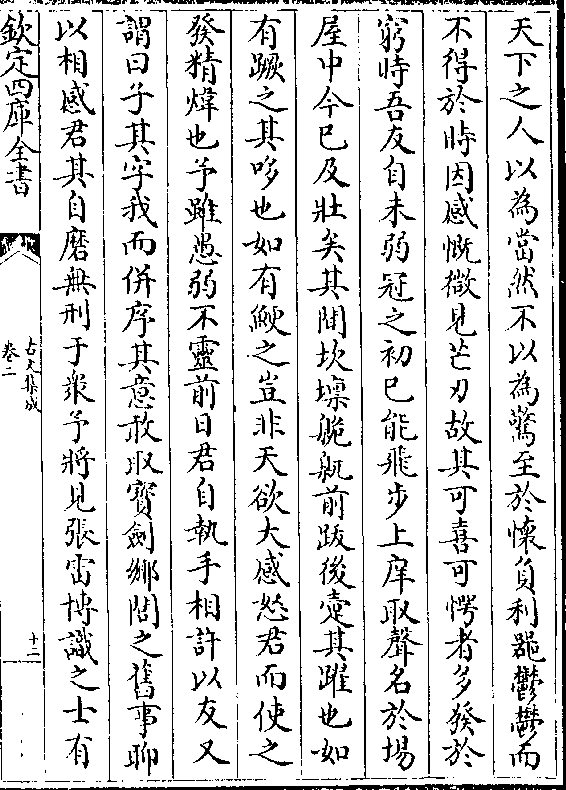 天下之人以為當然不以為驚至於懷負利器鬱鬱而
不得於時因感慨微見芒刃故其可喜可愕者多發於
窮時吾友自未弱冠之初已能飛步上庠取聲名於場
屋中今已及壯矣其間坎壈䑽卼前跋後疐其躍也如
有蹶之其哆也如有鯁之豈非天欲大感怒君而使之
發精煒也予雖愚弱不靈前日君自執手相許以友又
謂曰子其字我而併序其意敢取寶劍鄉閭之舊事聊
以相感君其自磨無刑于衆予將見張雷博識之士有
欽定四庫全書
古文集成
卷二
十二